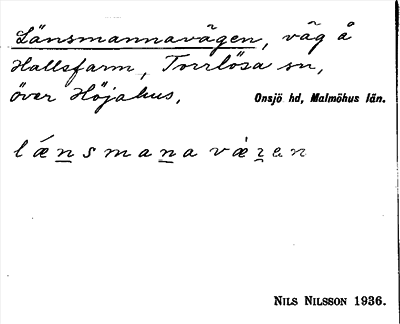 Länsmannavägen, väg å
Hallsfarm, Torrlösa sn,
över Höjahus, Onsjö hd, Malmöhus län.
lænsmana væɀen
NILS NILSSON 1936.